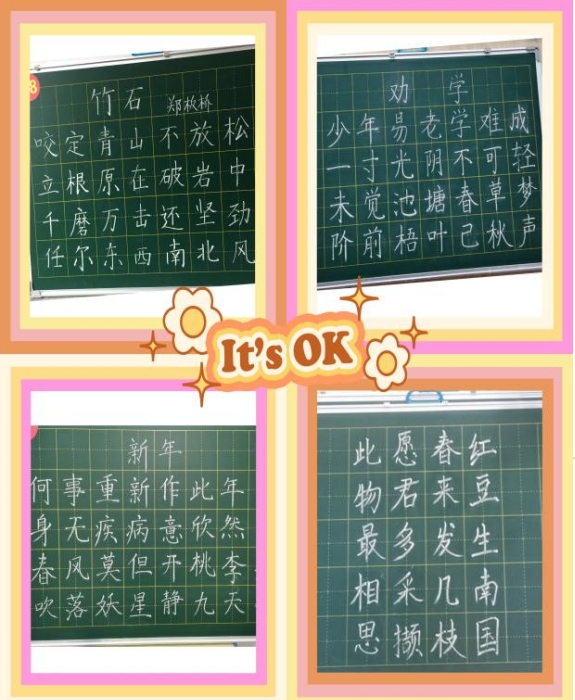 8
竹石 郑板桥
咬定青山不放松
立根原在破岩中
千磨万击还坚劲
任尔东西南北风
劝学
少年易老学难成
一寸光阴不可轻
未觉池塘春草梦
阶前梧叶己秋声
It's OK
新年
何事重新作此年
身无疾病意欣然
春风莫但开桃李
吹落妖星静九天
红豆生南国
春来发几枝
愿君多采撷
此物最相思